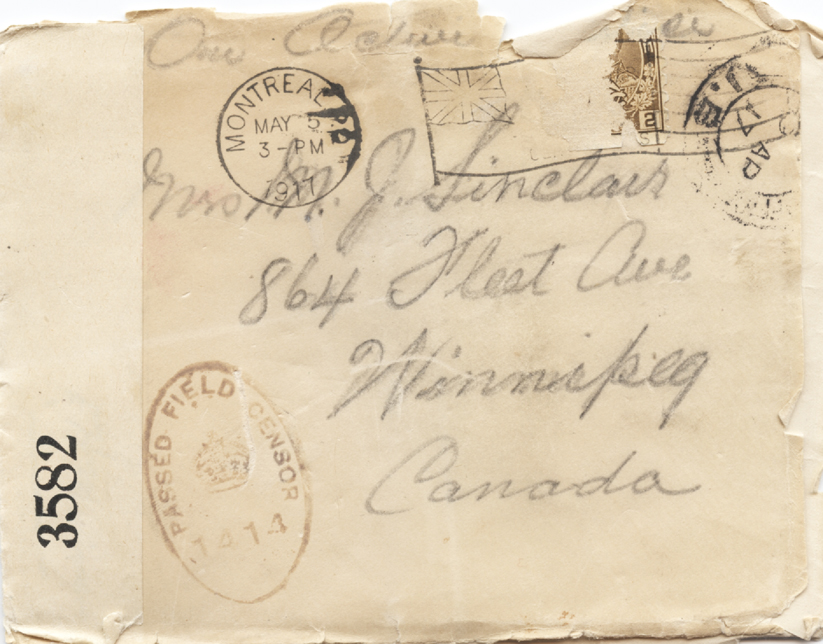 On Active
MONTREAL P.Q.
MAY 5
3 - PM
1917
2
Mrs M. J. Sinclair
864 Fleet Ave
Winnipeg
Canada
PASSED FIELD CENSOR
1414
3582